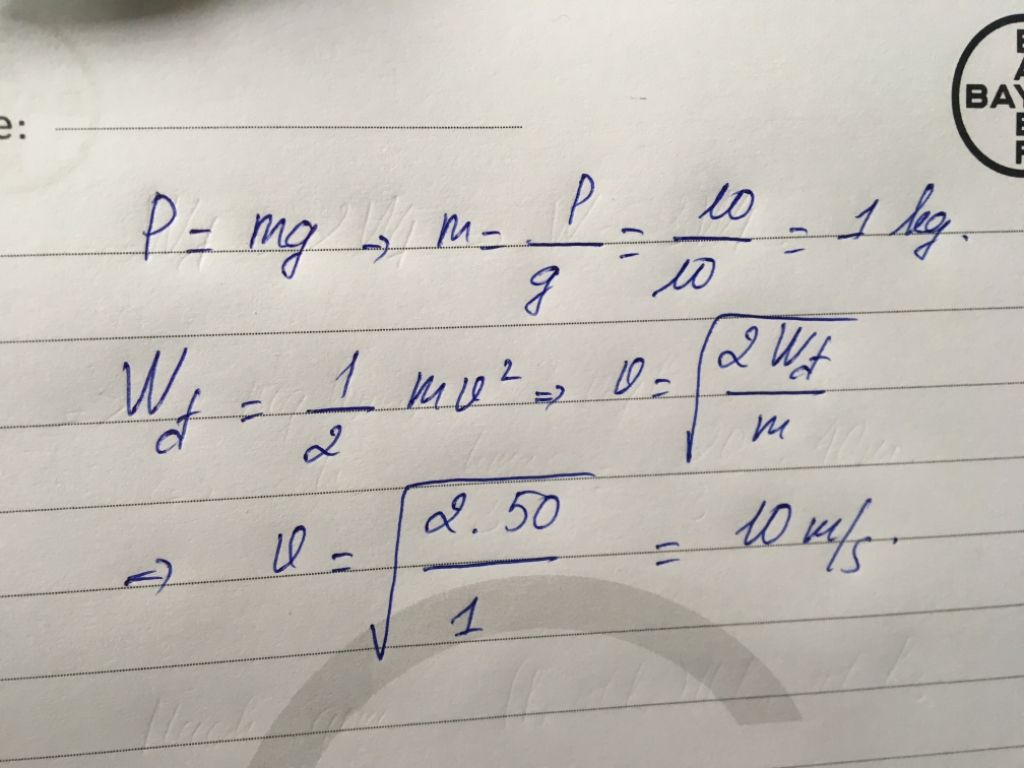 BAY
e:
P = mg → m = P/g = 10/10 = 1 kg.
Wđ = 1/2 mv² => v = √(2Wđ/m)
=> v = √(2.50/1) = 10 m/s.